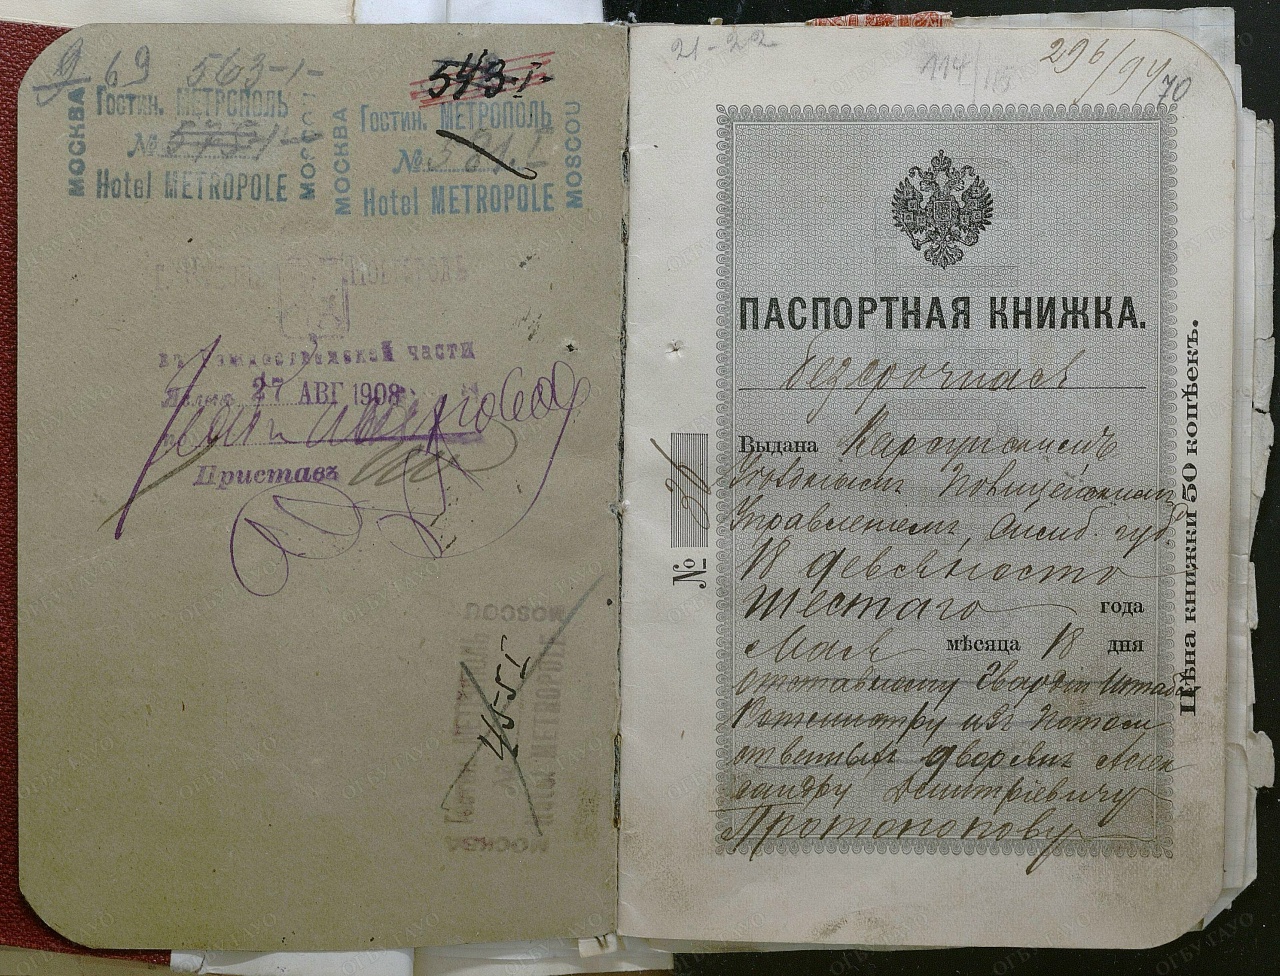 69 563-I-
МОСКВА
Гостин. МЕТРОПОЛЬ
№
Hotel METROPOLE
MOSCOU
543-I-
МОСКВА
Гостин. МЕТРОПОЛЬ
№ 381.I
Hotel METROPOLE
MOSCOU
части
27 АВГ 1908
Приставъ
455I
MOSCOU
МОСКВА
Hotel METROPOLE
21-22
114/115
296/94
70
ПАСПОРТНАЯ КНИЖКА.
безсрочная
Выдана Карсунскимъ
Уѣзднымъ Полицейскимъ
Управленіемъ, Симб. губ.
18 девяносто
шестаго года
Мая мѣсяца 18 дня
отставному Гвардіи Штабсъ
Ротмистру изъ потом
ственныхъ дворянъ Алек
сандру Дмитріевичу
Протопопову
№ 36
Цѣна книжки 50 копѣекъ.